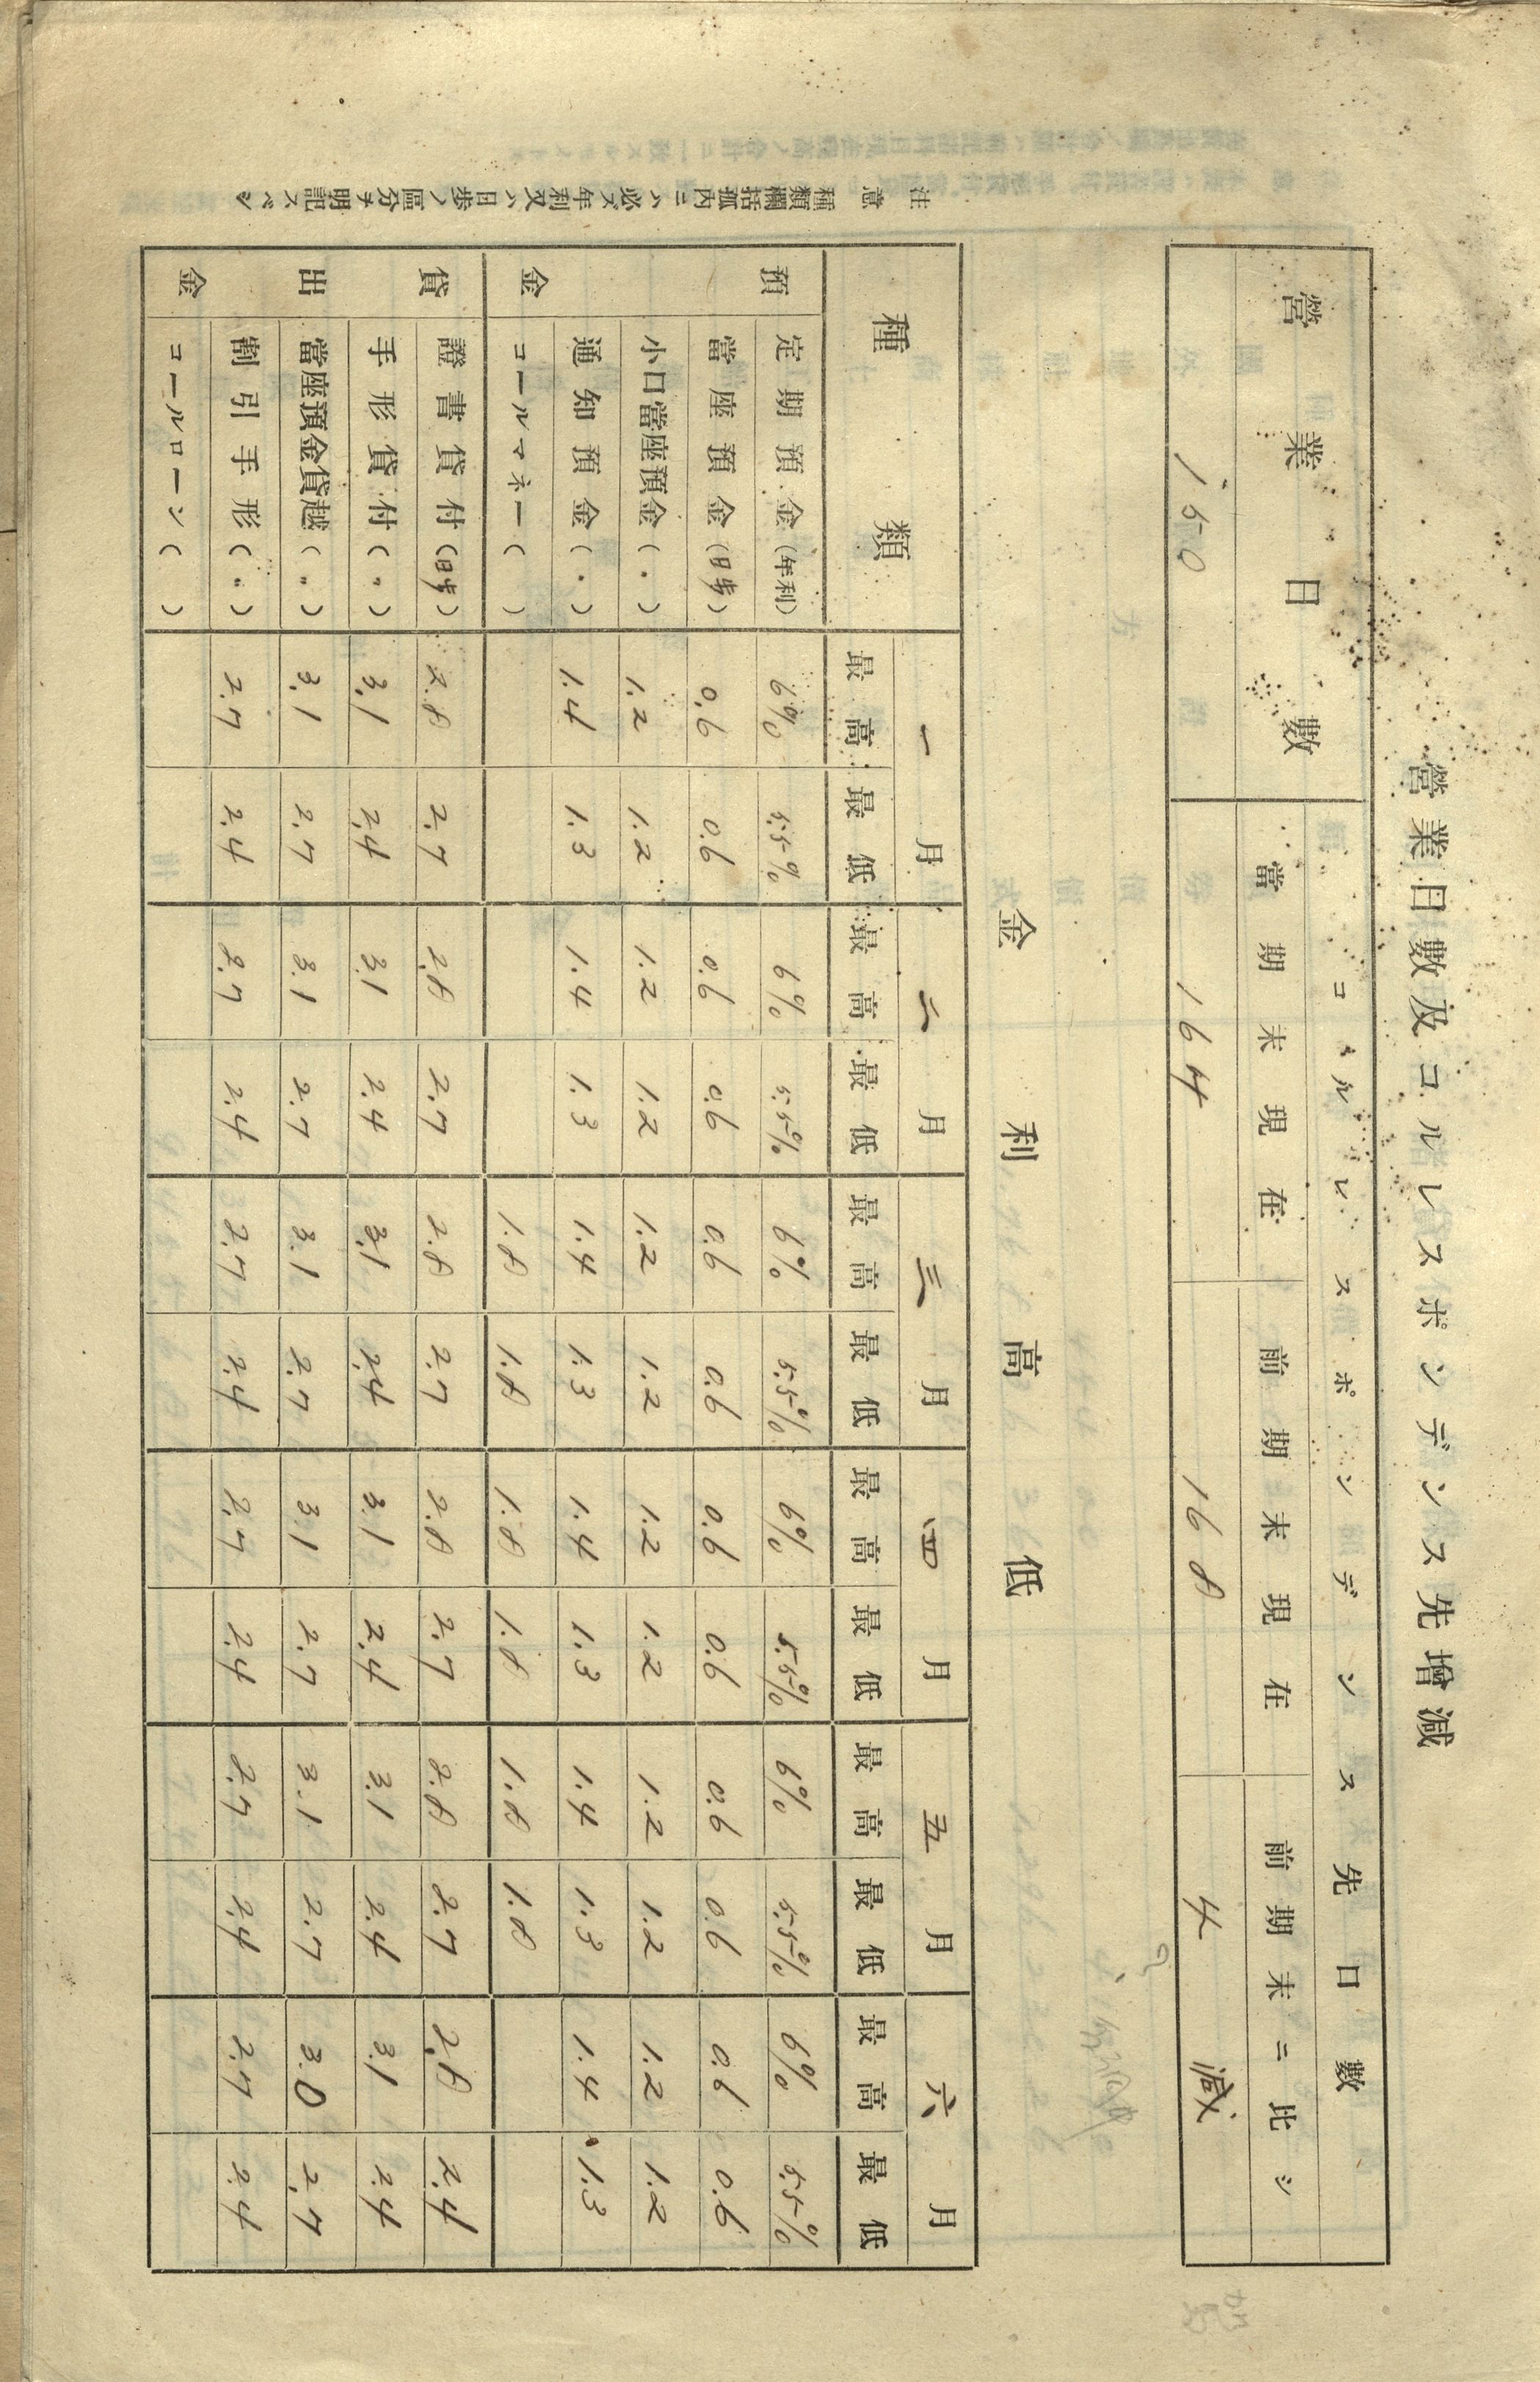 營業日數及コルレスポンデンス先增減
營業日數 コルレスポンデンス先口數
當期末現在 前期末現在 前期末ニ比シ
150 164 168 4 減
金利高低
種類 一月 二月 三月 四月 五月 六月
最高 最低 最高 最低 最高 最低 最高 最低 最高 最低 最高 最低
預金
定期預金(年利) 6% 5.5% 6% 5.5% 6% 5.5% 6% 5.5% 6% 5.5% 6% 5.5%
當座預金(日歩) 0.6 0.6 0.6 0.6 0.6 0.6 0.6 0.6 0.6 0.6 0.6 0.6
小口當座預金(〃) 1.2 1.2 1.2 1.2 1.2 1.2 1.2 1.2 1.2 1.2 1.2 1.2
通知預金(〃) 1.4 1.3 1.4 1.3 1.4 1.3 1.4 1.3 1.4 1.3 1.4 1.3
コールマネー( ) 1.8 1.8 1.8 1.8 1.8 1.8
貸出金
證書貸付(日歩) 2.8 2.7 2.8 2.7 2.8 2.7 2.8 2.7 2.8 2.7 2.8 2.4
手形貸付(〃) 3.1 2.4 3.1 2.4 3.1 2.4 3.1 2.4 3.1 2.4 3.1 2.4
當座預金貸越(〃) 3.1 2.7 3.1 2.7 3.1 2.7 3.1 2.7 3.1 2.7 3.0 2.7
割引手形(〃) 2.7 2.4 2.7 2.4 2.7 2.4 2.7 2.4 2.7 2.4 2.7 2.4
コールローン( )
注意 種類欄括孤内ニハ必ズ年利又ハ日歩ノ區分ヲ明記スベシ